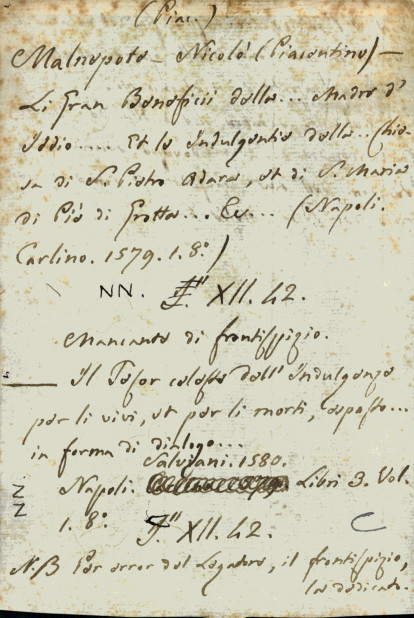 (Piac.)
Malnepote — Nicolò (Piacentino) —
Li Gran Beneficii della... Madre d'
Iddio.... Et le Indulgentie della.. Chie-
sa di S. Pietro Adara, et di S. Maria
di Piè di Grotta... &c... (Napoli.
Carlino. 1579. 1. 8.°)
NN. J." XII. 42.
Mancante di frontispizio.
— Il Tesor celeste dell' Indulgenze
per li vivi, et per li morti, esposto...
in forma di dialogo...
Salviani. 1580.
Napoli. Libri 3. Vol.
1. 8.° J." XII. 42.
NN
N.B Per error del Legatore, il frontispizio,
la dedicat.